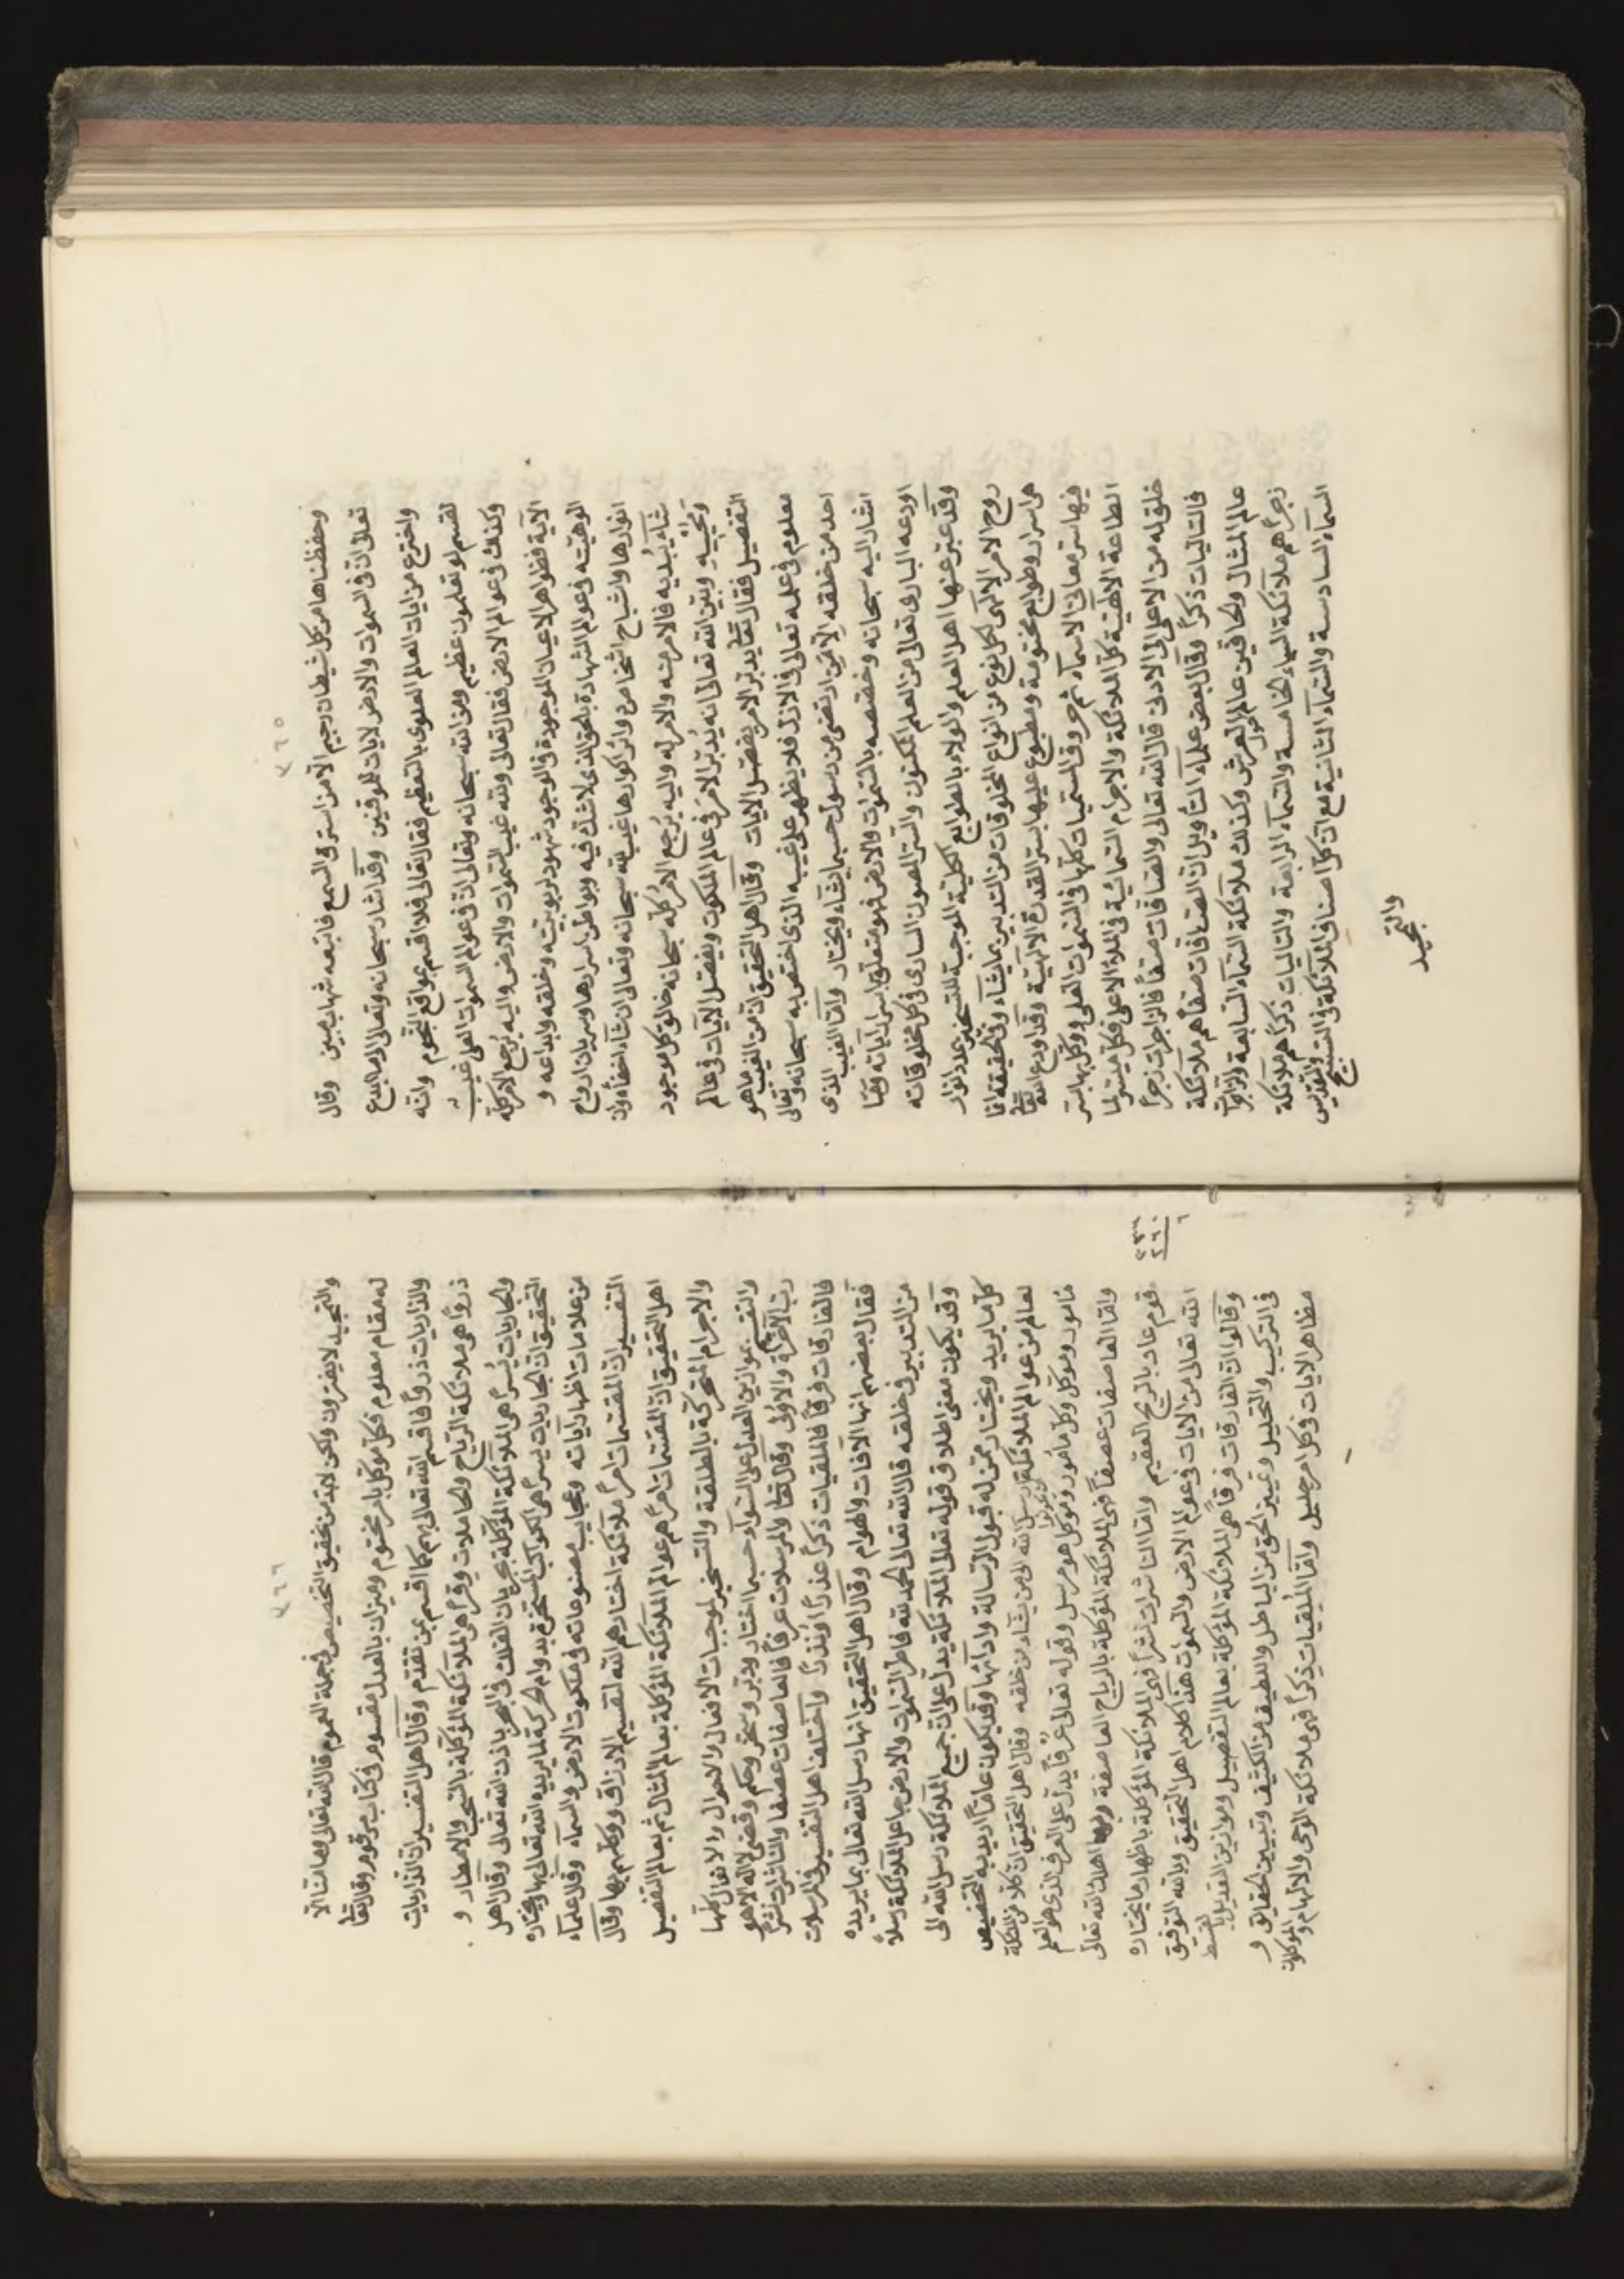 ٧٦٥
وحفظناها من كل شيطان رجيم الا من استرق السمع فاتبعه شهاب مبين وقال
تعالى ان فى السموات والارض لايات للموقنين وقد اشار سبحانه وتعالى لما ابدع
واخترع من ايات العالم العلوى بالتعظيم فقال تعالى فلا اقسم بمواقع النجوم وانه
لقسم لو تعلمون عظيم ومن الله سبحانه وتعالى ان فى عوالم السموات العلى غيب
وكذلك فى عوالم الارض فقال تعالى ولله غيب السموات والارض واليه يرجع الامر كله
الآية فظواهر الاعيان الموجودة فى الوجود شهود ربوبيته وخلقه وابداعه و
الوهيته فى عوالم الشهادة بالحق الذى لا شك فيه وبواطن اسرارها وسريان ارواح
انوارها واشباح اشخاص دوائر اكوارها غيب لله سبحانه وتعالى ان شاء اخفاه وان
شاء يبديه فالامر منه والامر له واليه يرجع الامر كله سبحانه خالق كل موجود
ومحييه وبين الله تعالى انه يدبر الامر فى عالم الملكوت ويفصل الآيات فى عالم
التفصيل فقال تعا يدبر الامر يفصل الايات وقال اهل التحقيق ان من الغيب ما هو
معلوم فى علمه تعالى فى الازل فلا يظهر على غيبه الذى اختص به سبحانه وتعالى
احد من خلقه الا من ارتضى من رسول حسبما يشاء ويختار واما الغيب الذى
اشار اليه سبحانه وخصصه بالسموات والارض فهو متعلق باسرار آياته ومما
اودعه البارى تعالى من العلم المكنون والسر المصون السارى فى كل مخلوقاته
وقد عبر عنها اهل العلم والولاء بالطوابع الكلية الموجبة للتسخير بمدد انوار
روح الامر الالهى لكل نوع من انواع المخلوقات من التدبير بما يشاء وفى الحقيقة انما
هى اسرار وطوابع مختومة ومطبوع عليها بستر القدرة الالهية وقد اودع الله تعا
فيها سر معانى الاسماء ثم حروف المسميات كلها فى السموات العلى ووكل بها بسر
الطاعة الالهية كل الملائكة والاجرام السمائية فى الملاء الاعلى فكل ميسر لما
خلق له من الاعلى الى الادنى قال الله تعالى والصافات صفا فالزاجرات زجرا
فالتاليات ذكرا وقال بعض علماء التأويل ان الصافات صفا هم ملائكة
عالم المثال والحافين حول عالم العرش وكذلك ملائكة السماء السابعة والزاجرات
زجرا هم ملائكة السماء الخامسة والسماء الرابعة والتاليات ذكرا هم ملائكة
السماء السادسة والسماء الثانية مع ان كل اصناف الملائكة فى التسبيح والتقديس
والتمجيد
٧٦٦
والتمجيد لا يفترون ولكن لابد من تحقيق التخصيص فى جملة العموم قال الله تعالى وما منا الا
له مقام معلوم فكل موكل بامر مختوم وميزان بالعدل مقسوم فى كتاب مرقوم وقال تعا
والذاريات ذروا فاقسم الله تعالى بهم كما اقسم بمن تقدم وقال اهل التفسير ان الذاريات
ذروا هى ملائكة الرياح والحاملات وقرا هى الملائكة الموكلة بالسحب والامطار و
والجاريات يسرا هى الملائكة الموكلة بجريان الفلك فى البحر باذن الله تعالى وقال اهل
التحقيق ان الجاريات يسرا هى الكواكب المسخرة بدوام الحركة لما يريد الله تعالى بها ويختاره
من علامات اظهار آياته وعجايب مصنوعاته فى ملكوت الارض والسماء وقال علماء
التفسير ان المقسمات امرا ملائكة اختارهم الله لتقسيم الارزاق ووكلهم بها وقال
اهل التحقيق ان المقسمات امرا هم عوالم الملائكة الموكلة بعالم المثال ثم بعالم التفصيل
والاجرام المتحركة بالطلقة والتسخير لموجبات الافعال والاحوال والانفعال كلها
والتقسيم بموازين العدل على السواء حسبما اختار ودبر وسخر وحكم وقضى لا اله الا هو
رب الآخرة والاولى وقال تعا والمرسلات عرفا فالعاصفات عصفا والناشرات نشرا
فالفارقات فرقا فالملقيات ذكرا عذرا او نذرا واختلف اهل التفسير فى المرسلات
فقال بعضهم انها الآفات والهوام وقال اهل التحقيق انها رسل الله تعالى بما يريده
من التدبير فى خلقه قال الله تعالى الحمد لله فاطر السموات والارض جاعل الملائكة رسلا
وقد يكون معنى اطلاق قوله تعالى الملائكة يدل على ان جميع الملائكة رسل الله الى
كل ما يريد ويختار ممن له قبول الرسالة وادآئها وقد يكون عاما اريد به التخصيص
لعالم من عوالم الملائكة ليكونوا رسل الله الى من يشاء من خلقه وقال اهل التحقيق ان كلا من الملائكة
مأمور وموكل وكل مأمور وموكل هو مرسل وقوله تعالى عرفا يدل على العرف الذى هو العلم
واما العاصفات عصفا فهى الملائكة الموكلة بالرياح العاصفة وبها اهلك الله تعالى
قوم عاد بالريح العقيم واما الناشرات نشرا فهى الملائكة الموكلة باظهار ما يختاره
الله تعالى من الايات فى عوالم الارض والسموات هذا كلام اهل التحقيق وبالله التوفيق
وقالوا ان الفارقات فرقا هى الملائكة الموكلة بعالم التفصيل وموازين التعديل بالقسط
فى التركيب والتحليل وتمييز الحق من الباطل واللطيف من الكثيف وتبيين الحقايق و
مظاهر الايات فى كل امر جليل واما الملقيات ذكرا فهى ملائكة الوحى والالهام والموكلون